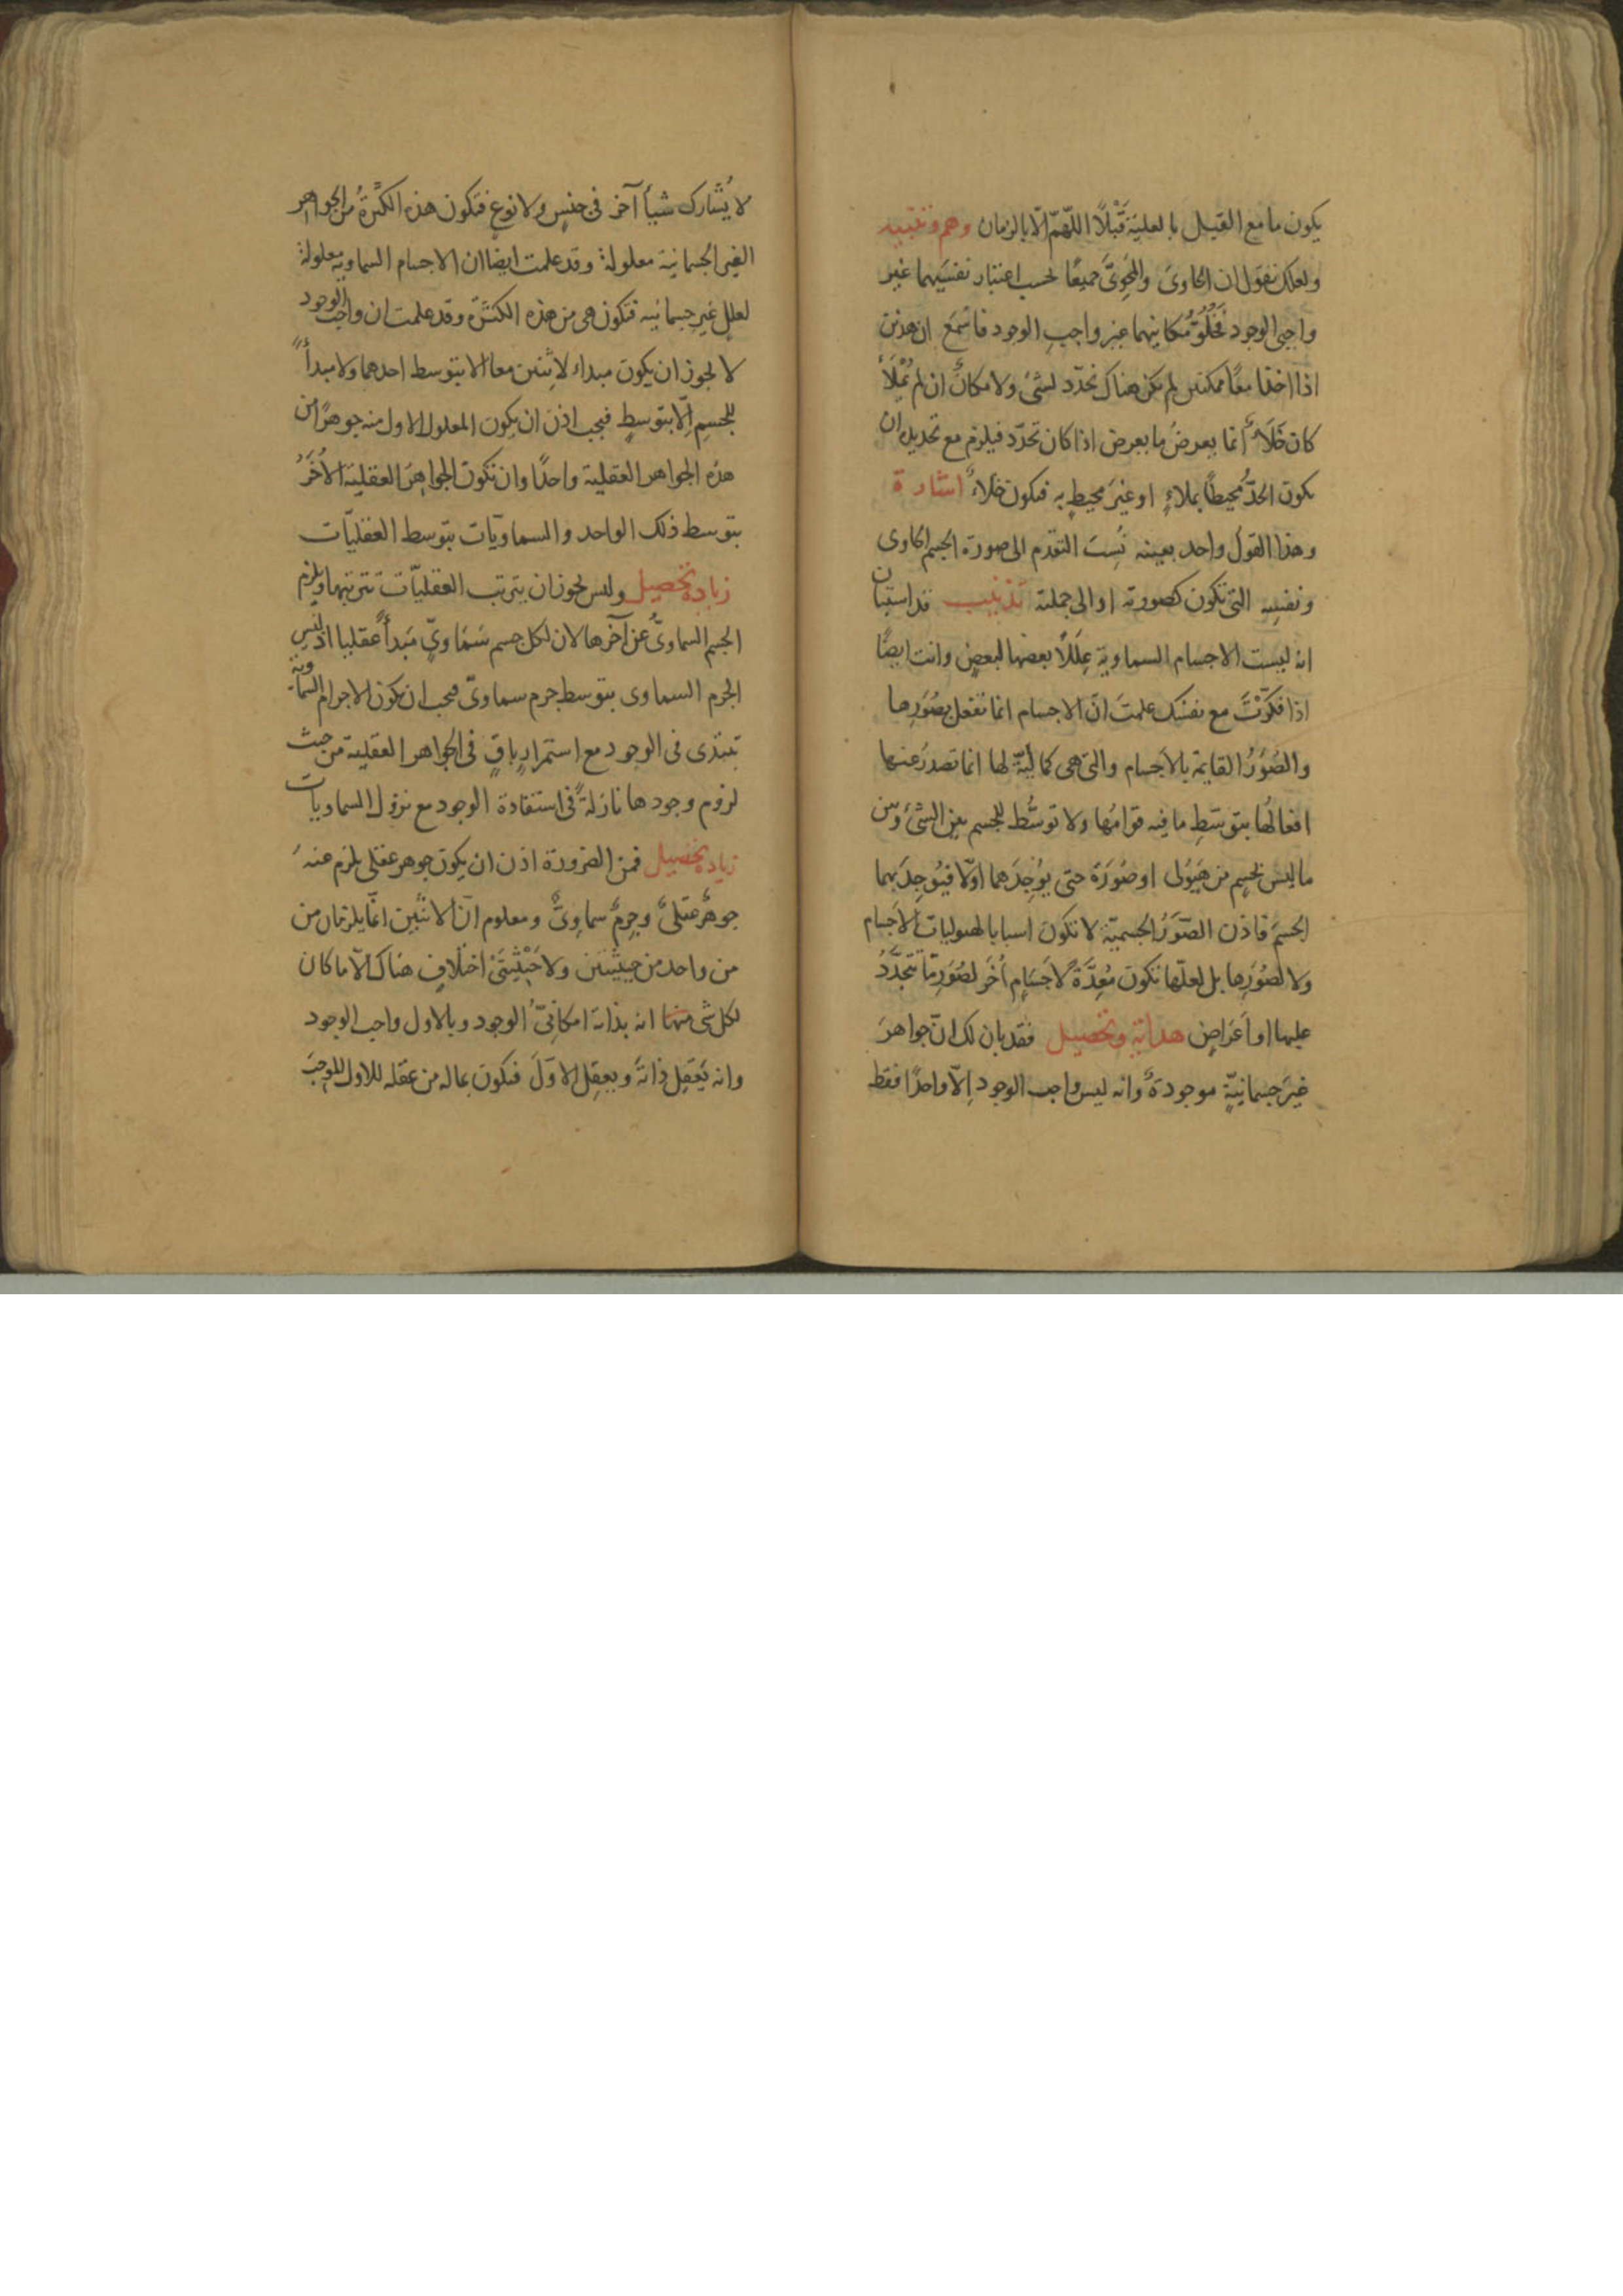 يكون ما مع القبل بالعلية قَبْلًا اللّهمّ الّا بالزمان وهم وتنبيه
ولعلك تقول ان الحاوى والمَحْوِىَّ جميعًا بحسب اعتبار نفسَيهما غير
واجبى الوجود فخُلُوُّ مكانيهما غير واجبِ الوجود فاسْمَع ان هذين
اذا اخذا معًا ممكنين لم يكن هناك تحدّد لشئ ولا مكانٌ ان لم يُمْلَأْ
كان خَلَاءً انما يعرضُ ما يعرض اذا كان تحدّد فيلزم مع تحديد ان
يكون الحدّ مُحيطًا بملاءٍ او غيرَ محيطٍ به فيكون خلاءً اشارة
وهذا القولُ واحد بعينه نُسِبَ التقدم الى صورة الجسم الحاوى
ونفسِه التى تكون كصورته او الى جملته تذنيب قد استبان
انه ليست الاجسام السماوية عِلَلًا بعضها لبعضٍ وانت ايضًا
اذا فكّرْتَ مع نفسك علمتَ انّ الاجسام انما تفعل بصُوَرِها
والصُوَرُ القايمة بالاجسام والتى هى كماليّة لها انما تصدرُ عنها
افعالُها بتوسّطِ ما فيه قوامُها ولا توسُّط للجسم بين الشئ وبين
ما ليس بجسمٍ من هَيُولى او صُورَة حتى يُوجِدَهما اوّلًا فيُوجِدَ بهما
الجسمَ فاذن الصّوَرُ الجسميّة لا تكون اسبابا لهيوليات الاجسام
ولا لصُوَرِها بل لعلّها تكون مُعِدَّةً لاجسَامٍ اُخَر لصُوَرٍ مّا تتجدَّدُ
عليها او اَعْرَاضٍ هداية وتحصيل فقد بان لك انّ جواهرَ
غيرَ جسمانيّةٍ موجودةٌ وانه ليس واجب الوجود اِلّا واحدًا فقط
لا يُشارك شيأً آخر فى جنسٍ ولا نوعٍ فتكون هذه الكثْرةُ من الجواهر
الغير الجسمانية معلولة وقد علمت ايضًا ان الاجسام السماوية معلولة
لعللٍ غيرِ جسمانيه فتكون هى من هذه الكثرة وقد علمت ان واجب الوجود
لا يجوز ان يكون مبداء لاثنين معا الا بتوسط احدهما ولا مبدأً
للجسمِ اِلّا بتوسطٍ فيجب اذن ان يكون المعلول الاول منه جوهرًا من
هذه الجواهر العقلية واحدًا وان تكون الجواهِرَ العقليّة الاُخَرُ
بتوسط ذلك الواحد والسماويّات بتوسط العقليّات
زيادة تحصيل وليس يجوز ان يترتب العقليّات ترتبها ويلزم
الجسم السماوىُّ عن آخرها لان لكل جسم سَمَاوىٍّ مَبدأً عقليا اذ ليس
الجرم السماوى بتوسط جرم سماوىّ فيجب ان يكون الاجرام السماوية
تبتدى فى الوجود مع استمرارٍ باقٍ فى الجواهر العقلية من حيث
لزوم وجودها نازلةً فى استفادة الوجود مع نزول السماويات
زيادة تحصيل فمن الضرورة اذن ان يكون جوهر عقلى يلزم عنه
جوهرٌ عقلىٌّ وجرمٌ سماوىٌّ ومعلوم انّ الاثنين انّما يلزمان من
من واحد من حيثيتين ولا حَيْثِيَّتَىْ اختلافٍ هناك الّا ما كان
لكل شى منها انه بذاته امكانىُّ الوجود وبالاول واجب الوجود
وانه يَعقِل ذاتَهُ ويعقِل الاوّلَ فيكون بما له من عقله للاول الموجبَ